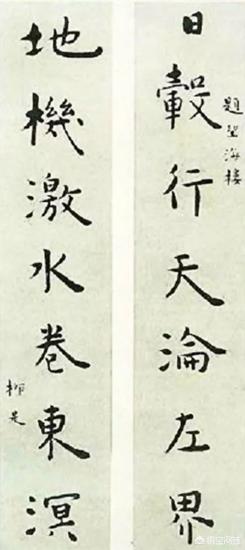 日轂行天淪左界
題望海樓
地機激水卷東溟
柳是
悟空问答